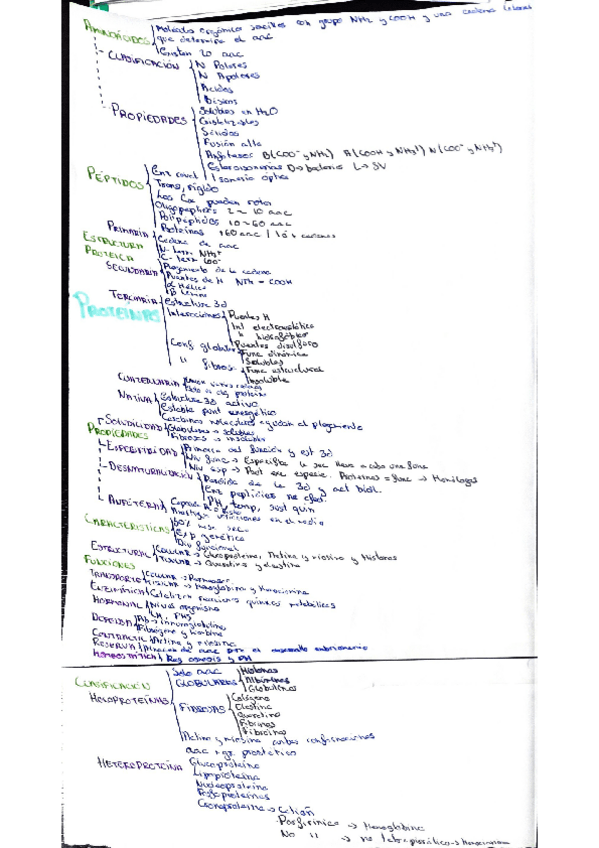 AMINOÁCIDOS Molécula orgánica con grupo NH2 y COOH y una cadena lateral
que determina el aac
Existen 20 aac
CLASIFICACIÓN N Polares
N Apolares
Ácidos
Básicos
PROPIEDADES Solubles en H2O
Cristalizables
Sólidos
Fusión alta
Anfóteros B(COO- y NH2) A(COOH y NH3+) N(COO- y NH3+)
Estereoisomerías D→ bacteria L→ SV
Isomería óptica
PÉPTIDOS Enl coval
Trans, rígido
Los Cα pueden rotar
Oligopéptidos 2 - 10 aac
Polipéptidos 10-60 aac
Proteínas +60 aac 1 ó + cadenas
ESTRUCTURA PROTEICA
PRIMARIA Cadena de aac
N- NH3+
C- COO-
SECUNDARIA Plegamiento de la cadena
Puentes de H NH - COOH
α Hélice
β
PROTEÍNAS
TERCIARIA Estructura 3d
Interacciones Puentes H
Int electrostática
" hidrofóbico
Puentes disulfuro
Conf globular Func dinámica
Solubles
" fibrosa Func estructural
Insoluble
CUATERNARIA Unión varias cadenas
NATIVA Estructura 3d activa
Estable punt energético
moleculares ayudan al plegamiento
PROPIEDADES
SOLUBILIDAD Globulares → solubles
Fibrosas → insolubles
ESPECIFICIDAD Primaria def función y est 3d
Niv func → Específica la que lleva a cabo una func
Niv esp → Prot exc especie. Proteínas = func → Homólogas
DESNATURALIZACIÓN Pérdida de la 3d y act biol.
Enl peptídicos no afect.
PH, temp, sust quim
ANFÓTERAS
variaciones en el medio
CARACTERÍSTICAS 50% masa seca
Exp genética
Div funcional
FUNCIONES
ESTRUCTURAL CELULAR → Glucoproteína, Actina y miosina y Histonas
TISULAR → Queratina y elastina
TRANSPORTE CELULAR → Permeasas
TISULAR → Hemoglobina y Hemocianina
ENZIMÁTICA Catalizan reacciones químicas metabólicas
HORMONAL Nivel organismo
DEFENSA Ab → inmunoglobulina
Fibrógeno y trombina
CONTRÁCTIL Actina y miosina
RESERVA Almacén de aac para el desarrollo embrionario
HOMEOSTÁTICA Reg osmosis y PH
CLASIFICACIÓN
HOLOPROTEÍNAS Solo aac
GLOBULARES Histonas
Albúminas
Globulinas
FIBROSAS Colágeno
Elastina
Queratina
Fibrinas
Fibroínas
Actina y miosina ambas conformaciones
HETEROPROTEÍNA aac + gr prostético
Glucoproteína
Lipoproteína
Nucleoproteína
Fosfoproteínas
Cromoproteína → Catión
Porfirínica → Hemoglobina
No " → no tetrapirrólico → Hemocianina